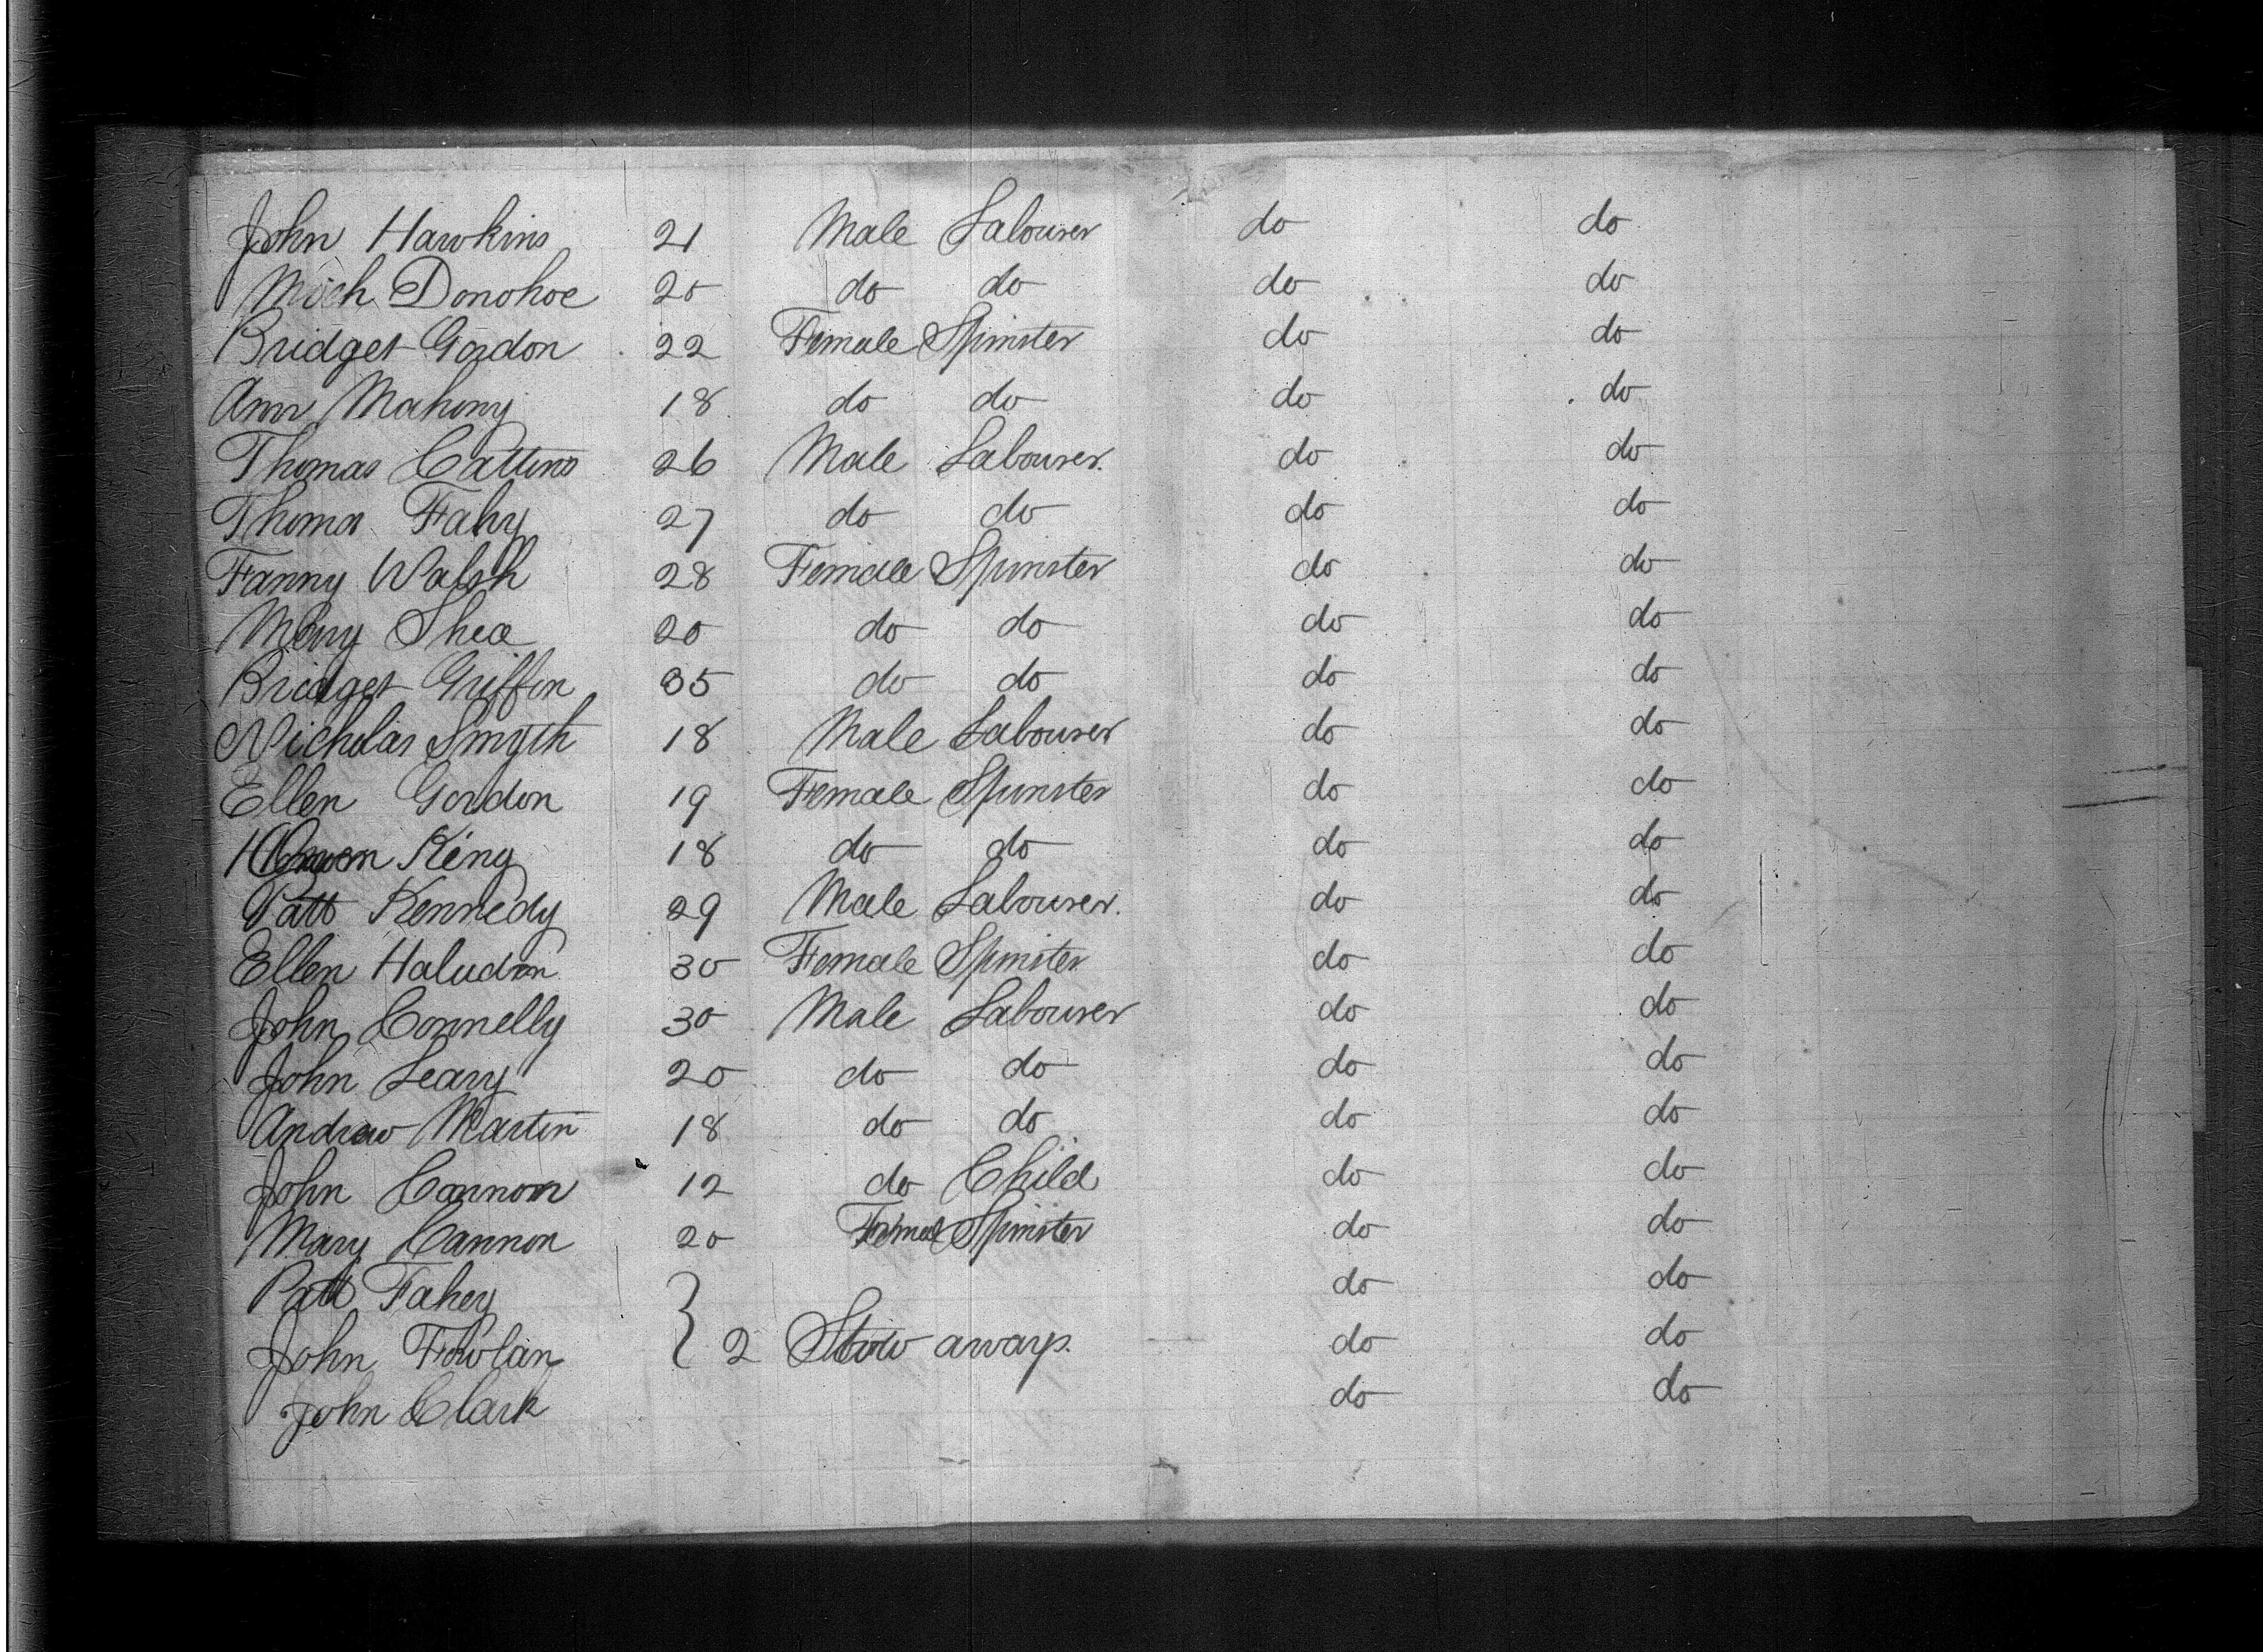 John Hawkins 21 Male Labourer do do
Mich Donohoe 20 do do do do
Bridget Gordon 22 Female Spinster do do
Ann Mahony 18 do do do do
Thomas Cattins 26 Male Labourer do do
Thomas Fahy 27 do do do do
Fanny Walsh 28 Female Spinster do do
Mary Shea 20 do do do do
Bridget Griffin 35 do do do do
Nicholas Smyth 18 Male Labourer do do
Ellen Gordon 19 Female Spinster do do
King 18 do do do do
Patt Kennedy 29 Male Labourer do do
Ellen 30 Female Spinster do do
John Connelly 30 Male Labourer do do
John Leary 20 do do do do
Andrew Martin 18 do do do do
John Cannon 12 do Child do do
Mary Cannon 20 Female Spinster do do
Patt Fahey do do
John Fowlan } 2 Stow aways. do do
John Clark do do